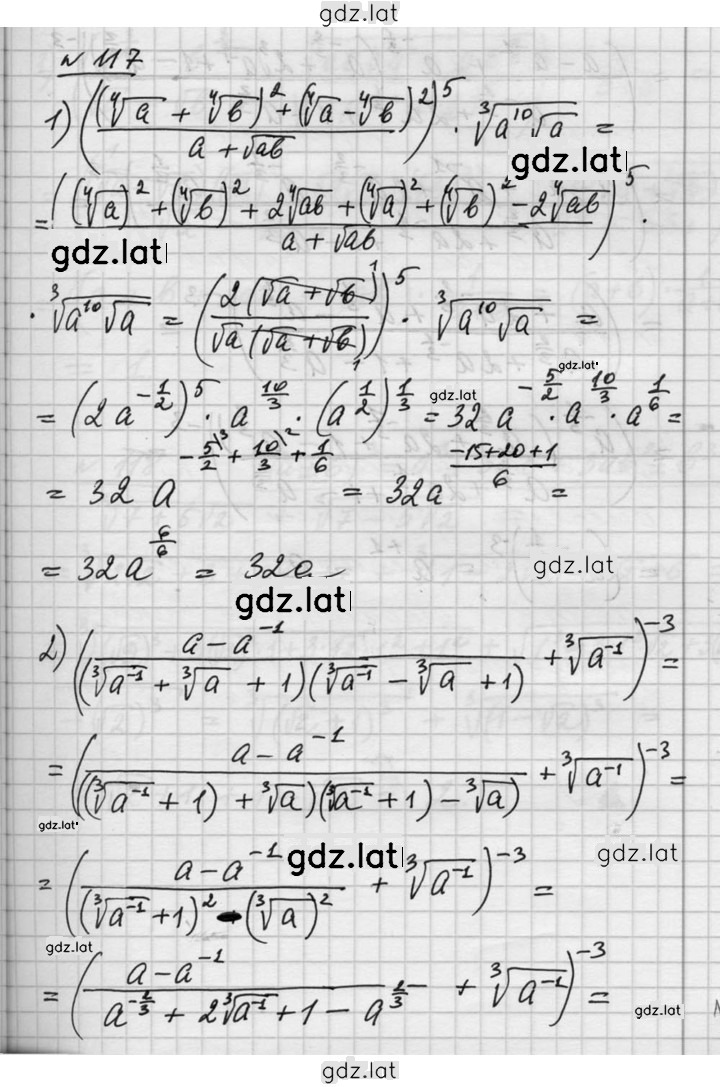 gdz.lat
№ 117
1) (((⁴√a + ⁴√b)² + (⁴√a - ⁴√b)²) / (a + √ab))⁵ · ³√(a¹⁰√a) =
gdz.lat
= (((⁴√a)² + (⁴√b)² + 2⁴√ab + (⁴√a)² + (⁴√b)² - 2⁴√ab) / (a + √ab))⁵ ·
gdz.lat
· ³√(a¹⁰√a) = (2(√a + √b)¹ / √a(√a + √b)₁)⁵ · ³√(a¹⁰√a) =
gdz.lat
= (2a^(-1/2))⁵ · a^(10/3) · (a^(1/2))^(1/3) = 32a^(-5/2) · a^(10/3) · a^(1/6) =
gdz.lat
= 32a^(-5/2\3 + 10/3\2 + 1/6) = 32a^((-15+20+1)/6) =
= 32a^(6/6) = 32a
gdz.lat
gdz.lat
2) ((a - a⁻¹) / ((³√a⁻¹ + ³√a + 1)(³√a⁻¹ - ³√a + 1)) + ³√a⁻¹)⁻³ =
= ((a - a⁻¹) / (((³√a⁻¹ + 1) + ³√a)(³√a⁻¹ + 1) - ³√a) + ³√a⁻¹)⁻³ =
gdz.lat
gdz.lat
gdz.lat
= ((a - a⁻¹) / ((³√a⁻¹ + 1)² - (³√a)²) + ³√a⁻¹)⁻³ =
gdz.lat
= ((a - a⁻¹) / (a^(-2/3) + 2³√a⁻¹ + 1 - a^(2/3)) + ³√a⁻¹)⁻³ =
gdz.lat
gdz.lat